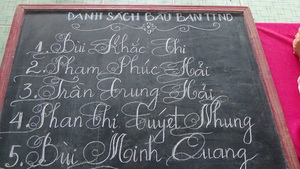 DANH SÁCH BẦU BAN TTND
1. Bùi Khắc Thi
2. Phạm Phúc Hải
3. Trần Trung Hải
4. Phan Thị Tuyết Nhung
5. Bùi Minh Quang